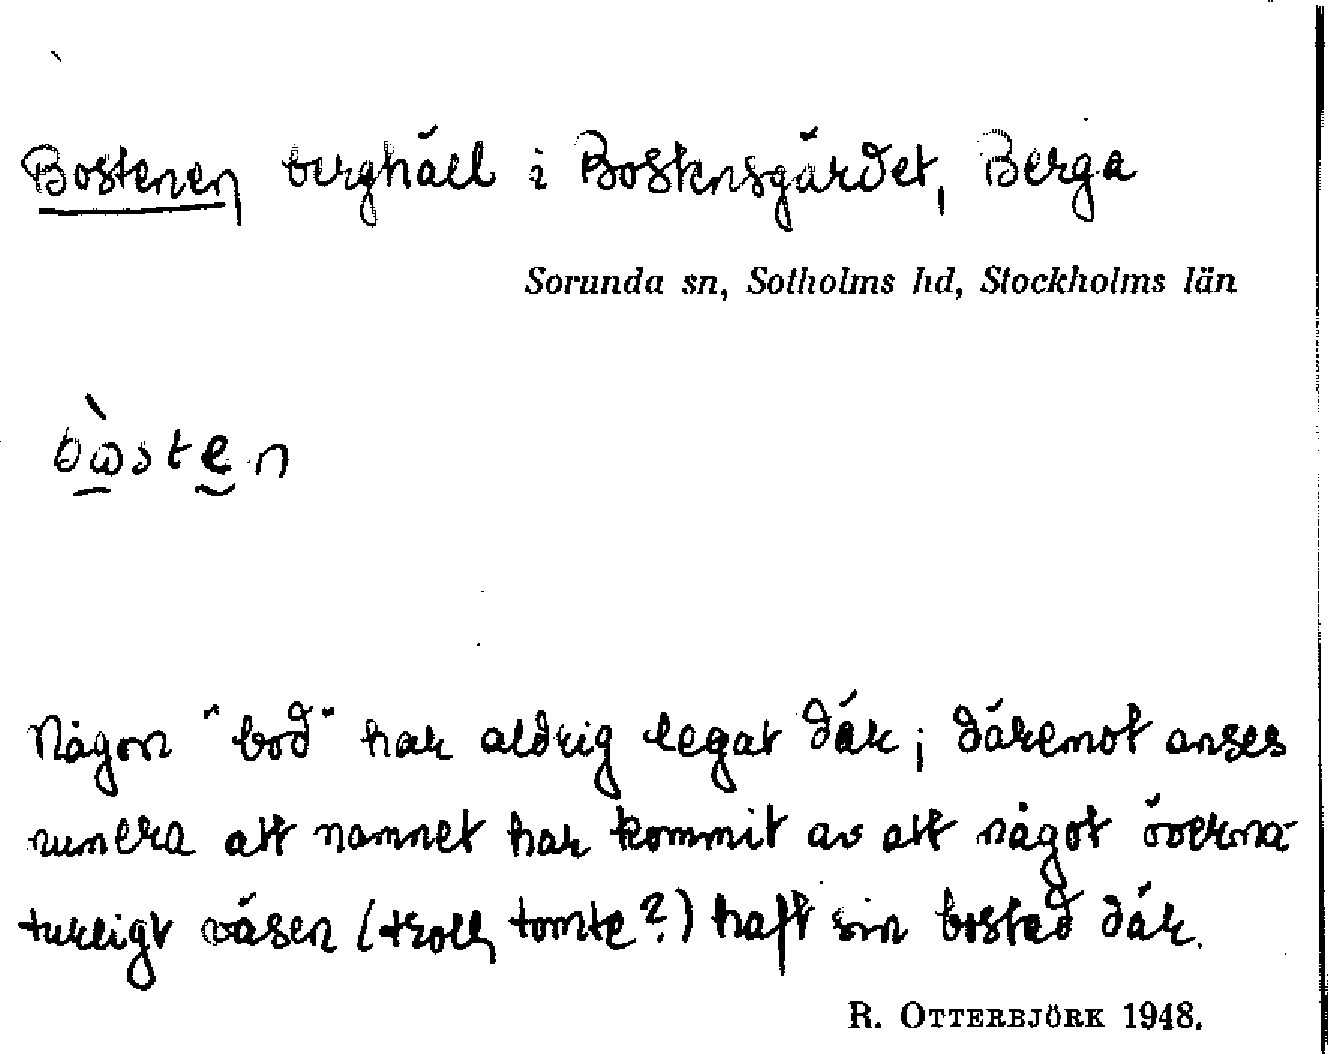 Bostenen berghäll i Bostensgärdet, Berga
Sorunda sn, Sotholms hd, Stockholms län
Någon "bod" har aldrig legat där; däremot anses
numera att namnet har kommit av att något överna-
turligt väsen (troll, tomte?) haft sin bostad där.
R. OTTERBJÖRK 1948.